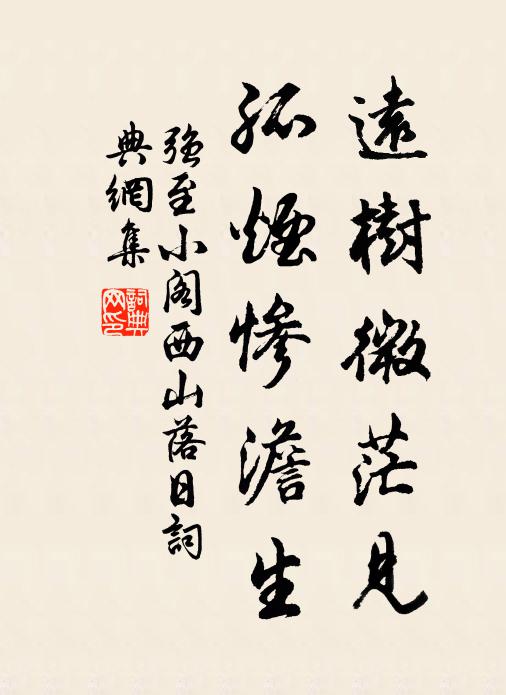 遠樹微茫見
孤煙慘澹生
強至小閣西山落日詞
典網集
詞典網印